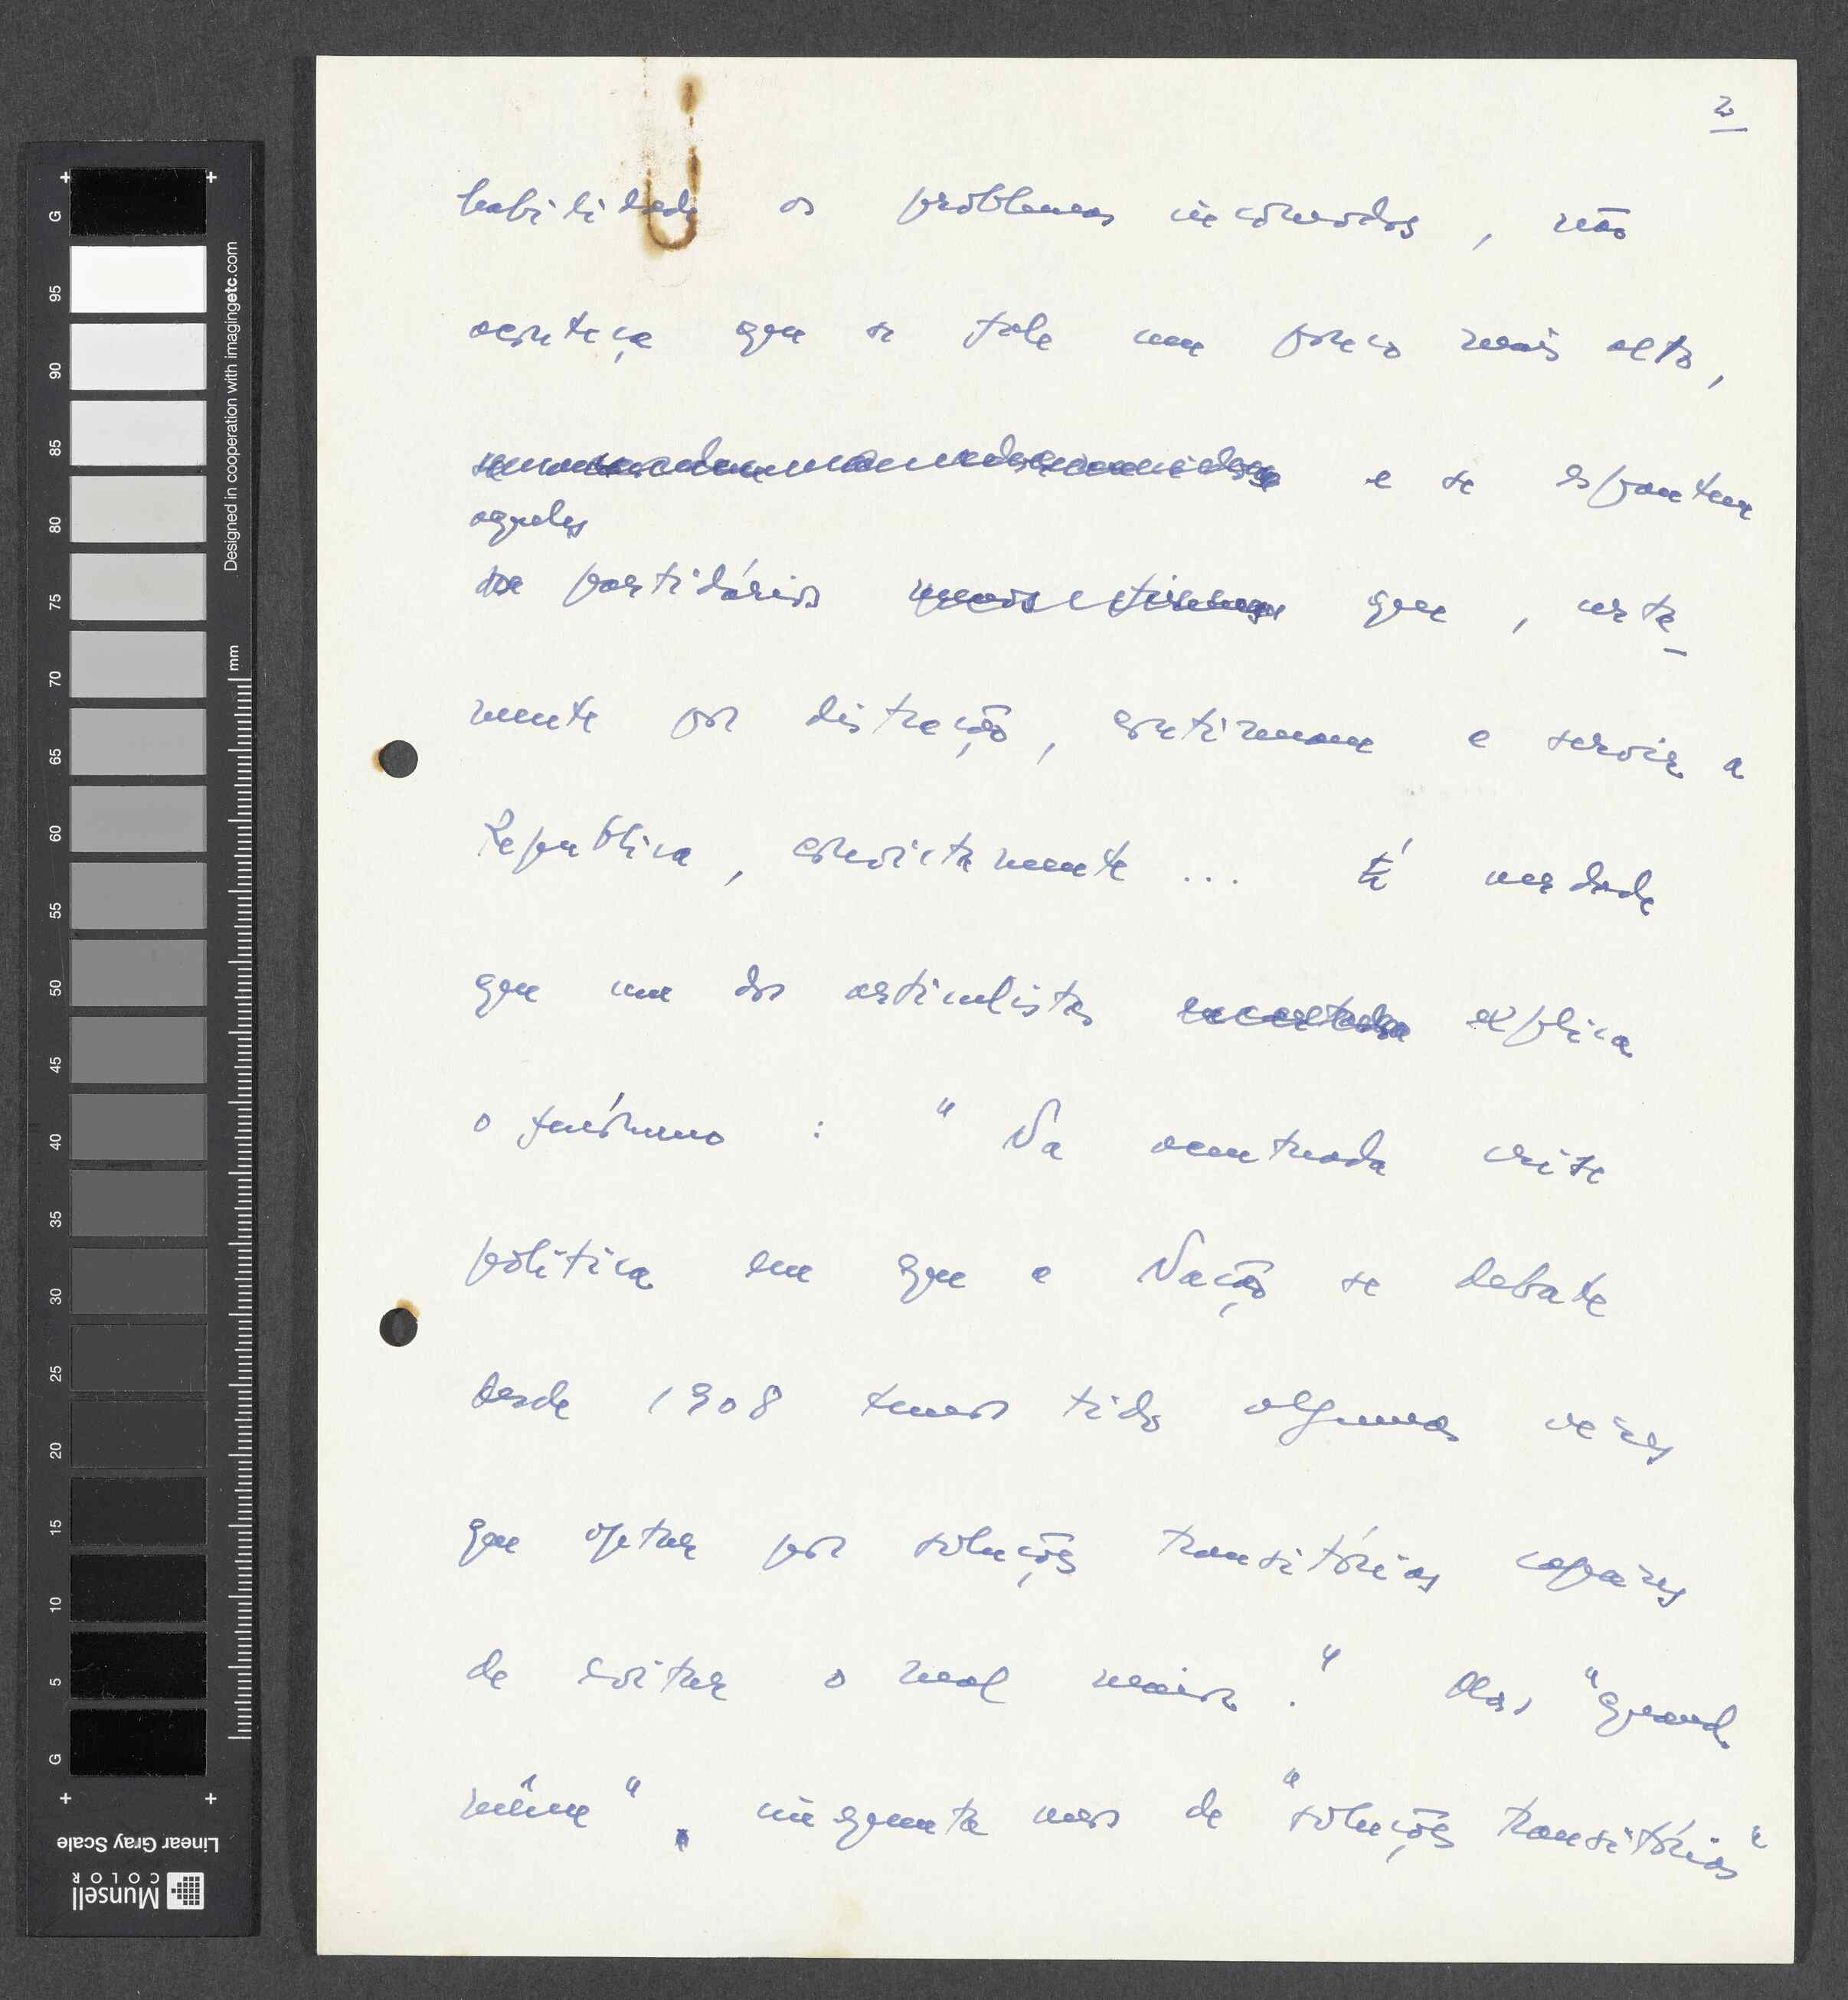 2
habilidade os problemas incómodos, não
aconteça que se fale um pouco mais alto,
e se espantem
aqueles
partidários que, certa-
mente por distracção, continuam a servir a
Republica, convictamente... É verdade
que um dos articulistas explica
o fenómeno: "Na acentuada crise
política em que a Nação se debate
desde 1908 temos tido algumas vezes
que optar por soluções transitórias capazes
de evitar o mal maior." Mas, "quand
même", cinquenta anos de "soluções transitórias"
+ G 95 90 85 80 75 70 65 60 55 50 45 40 35 30 25 20 15 10 5 G +
Designed in cooperation with imagingetc.com
mm
Linear Gray Scale
Munsell
COLOR